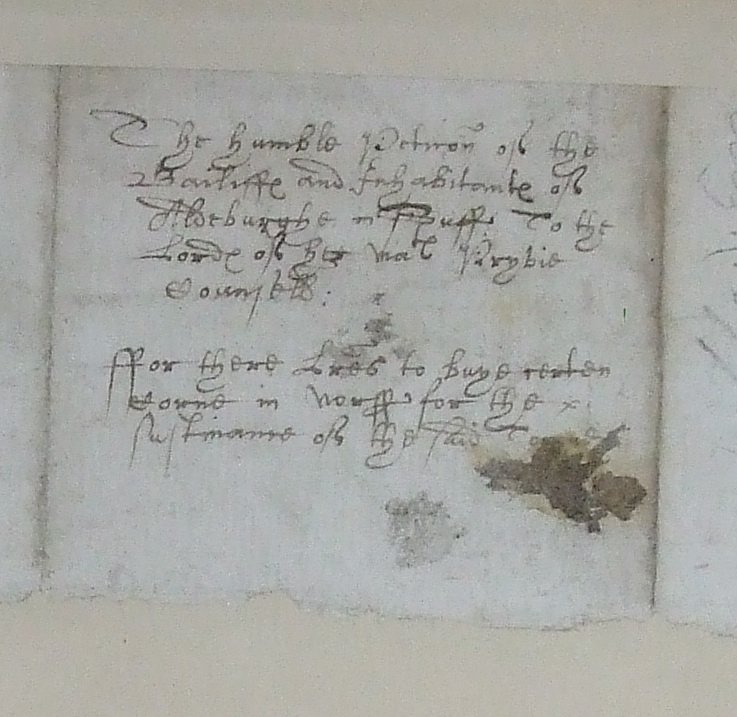 The humble Peticon of the
Bailiffes and Inhabitantes of
Aldeburghe in Suff. To the
Lordes of her Mates Pryvie
Counsell:
ffor there lres to buye certen
Corne in Norff for the
sustinance of the said Towne